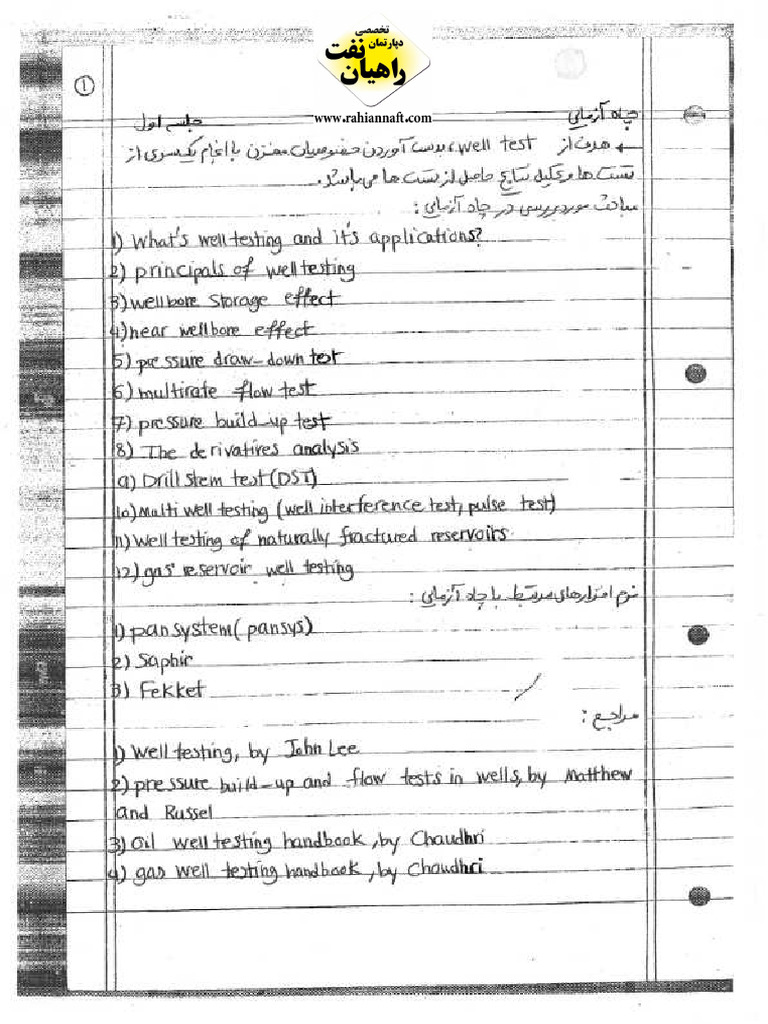 تخصصی
دپارتمان
نفت
راهیان
www.rahiannaft.com
1
چاه آزمایی جلسه اول
هدف از well test، بدست آوردن خصوصیات مخزن با انجام یکسری از
تست ها و تحلیل نتایج حاصل از تست ها می باشد.
مباحث مورد بررسی در چاه آزمایی:
1) What's well testing and it's applications?
2) principals of well testing
3) wellbore storage effect
4) near wellbore effect
5) pressure draw-down test
6) multirate flow test
7) pressure build-up test
8) The derivatives analysis
9) Drill stem test (DST)
10) Multi well testing (well interference test, pulse test)
11) Well testing of naturally fractured reservoirs
12) gas reservoir well testing
نرم افزارهای مرتبط با چاه آزمایی:
1) pan system (pansys)
2) Saphir
3) Fekket
مراجع:
1) Well testing, by John Lee
2) pressure build-up and flow tests in wells, by Matthew
and Russel
3) Oil well testing handbook, by Chaudhri
4) gas well testing handbook, by Chaudhri